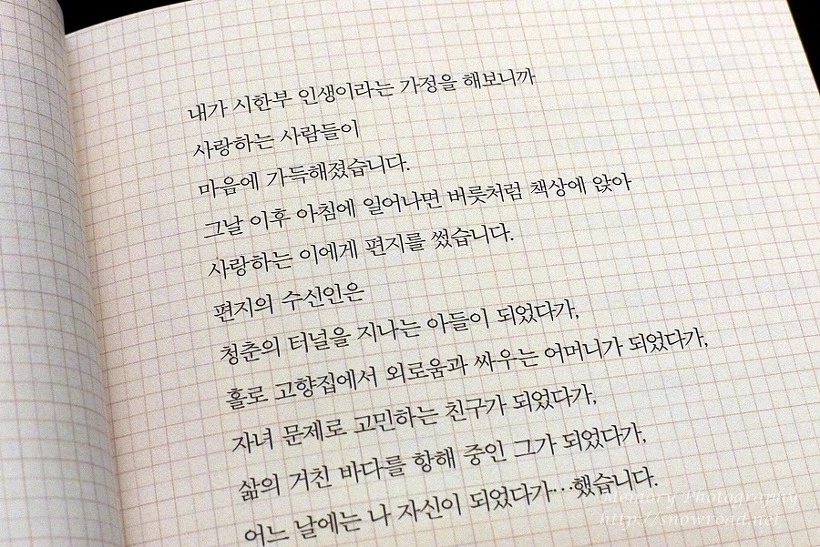 내가 시한부 인생이라는 가정을 해보니까
사랑하는 사람들이
마음에 가득해졌습니다.
그날 이후 아침에 일어나면 버릇처럼 책상에 앉아
사랑하는 이에게 편지를 썼습니다.
편지의 수신인은
청춘의 터널을 지나는 아들이 되었다가,
홀로 고향집에서 외로움과 싸우는 어머니가 되었다가,
자녀 문제로 고민하는 친구가 되었다가,
삶의 거친 바다를 항해 중인 그가 되었다가,
어느 날에는 나 자신이 되었다가…했습니다.
Memory Photography
http://snowroad.net